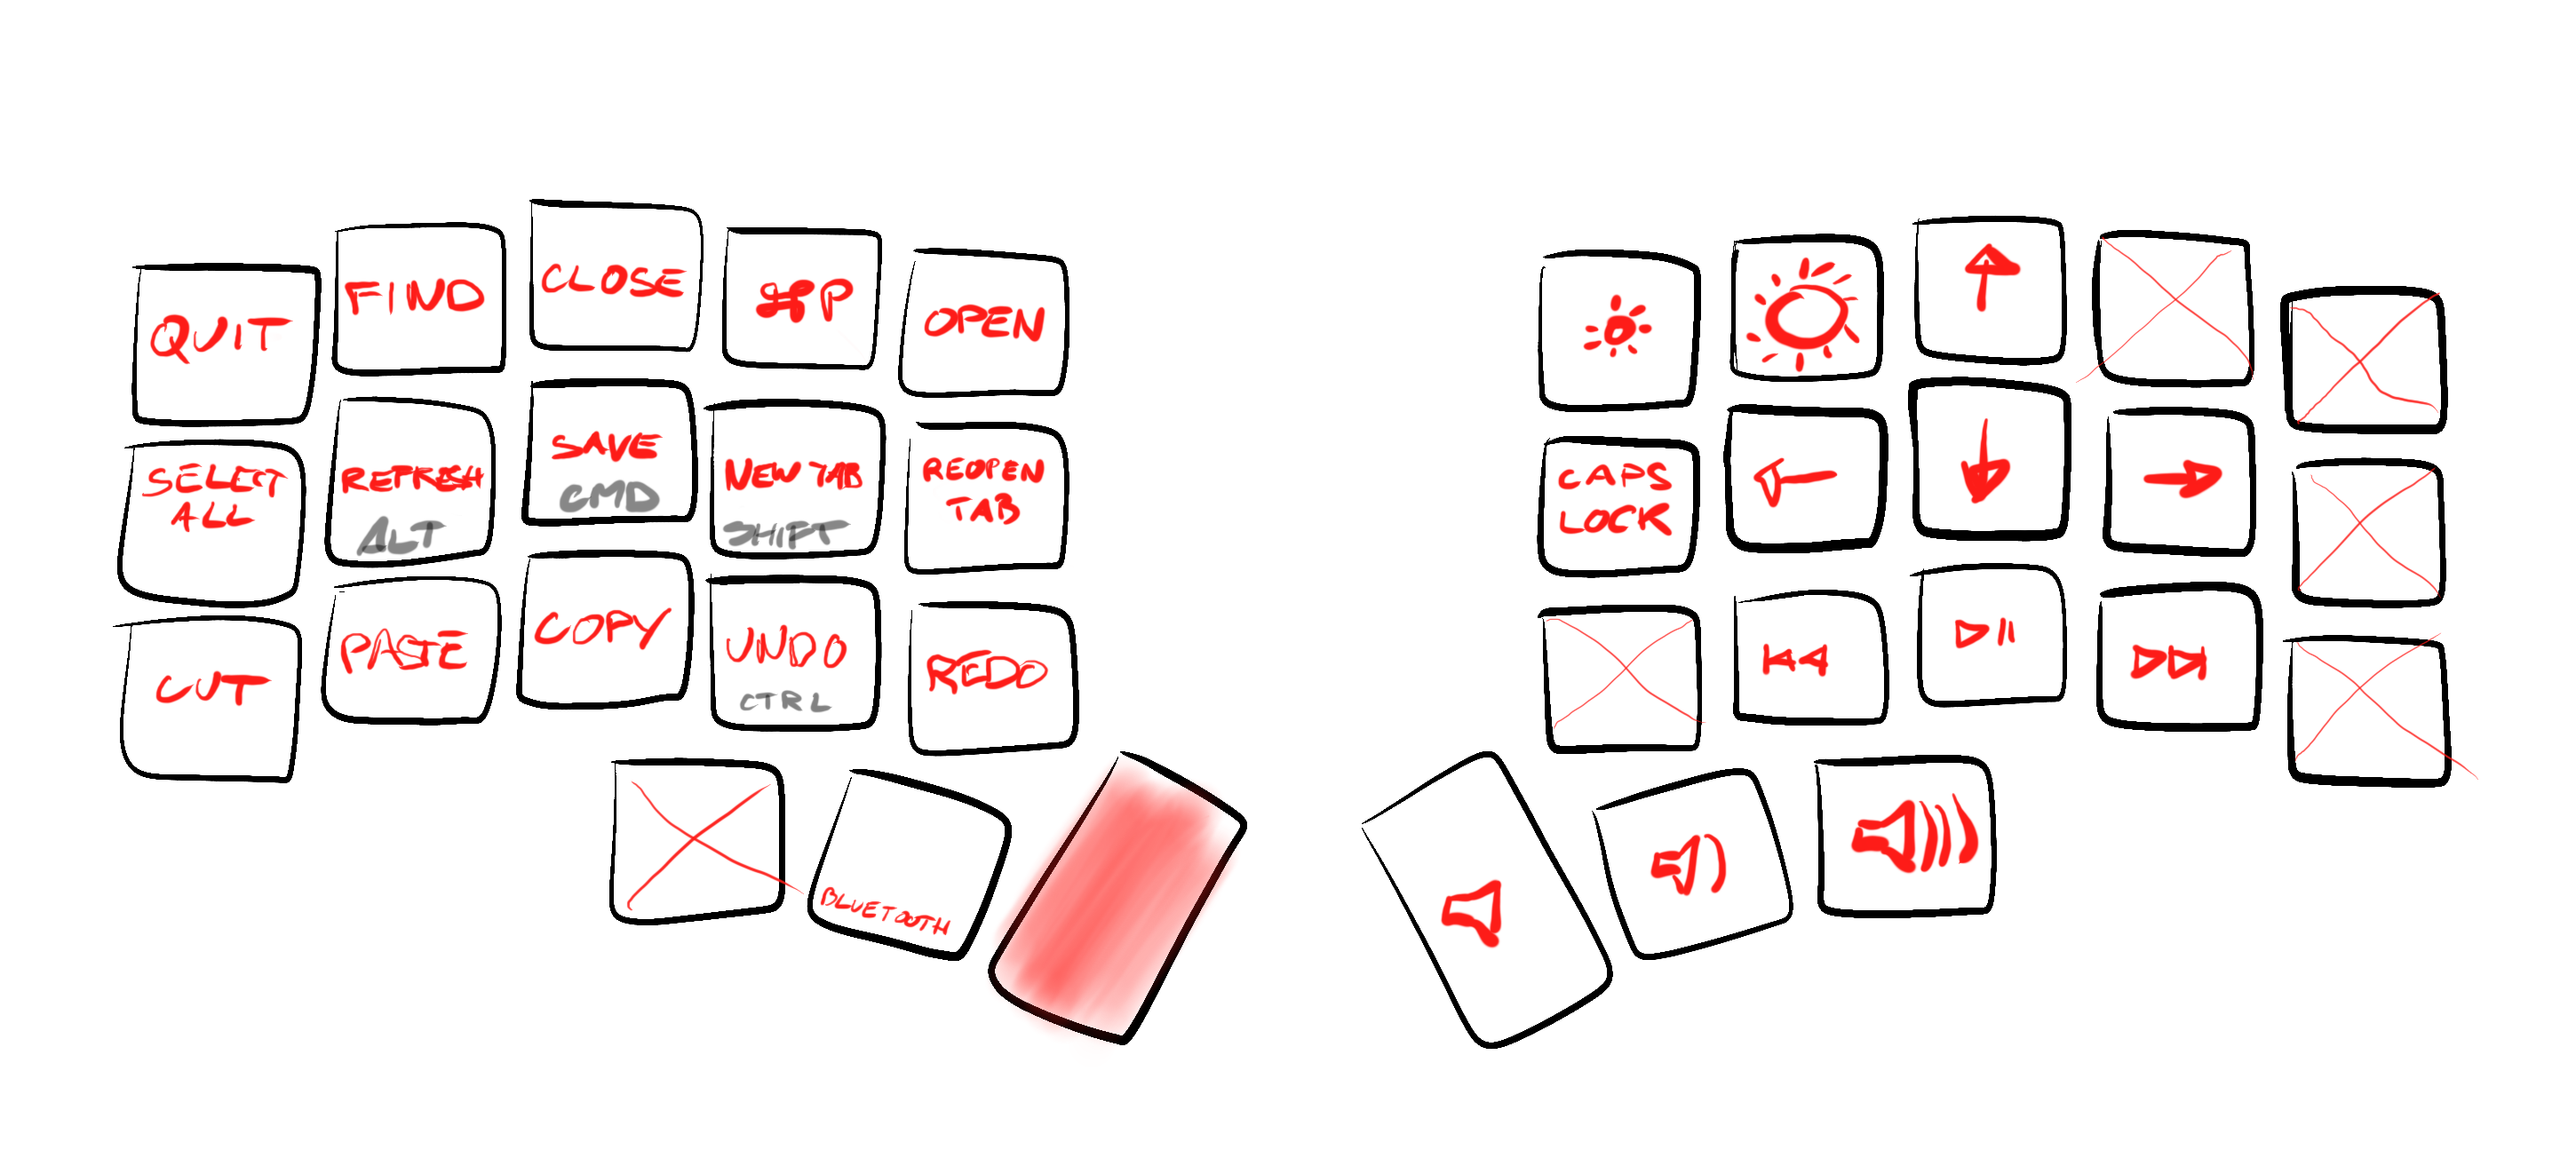 QUIT
FIND
CLOSE
⌘P
OPEN
SELECT
ALL
REFRESH
ALT
SAVE
CMD
NEW TAB
SHIFT
REOPEN
TAB
CAPS
LOCK
CUT
PASTE
COPY
UNDO
CTRL
REDO
BLUETOOTH